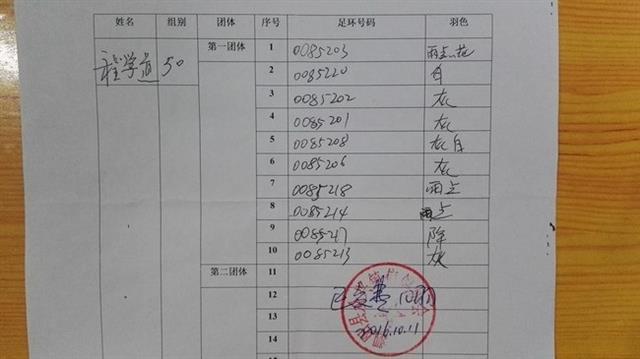 姓名 组别 团体 序号 足环号码 羽色
程学道 50 第一团体 1 0085203 雨点花
2 0085220 白
3 0085202 灰
4 0085201 灰
5 0085208 灰白
6 0085206 灰
7 0085218 雨点
8 0085214 雨点
9 0085217 降
10 0085213 灰
第二团体 11
12 已交费
13 2016.10.11
14